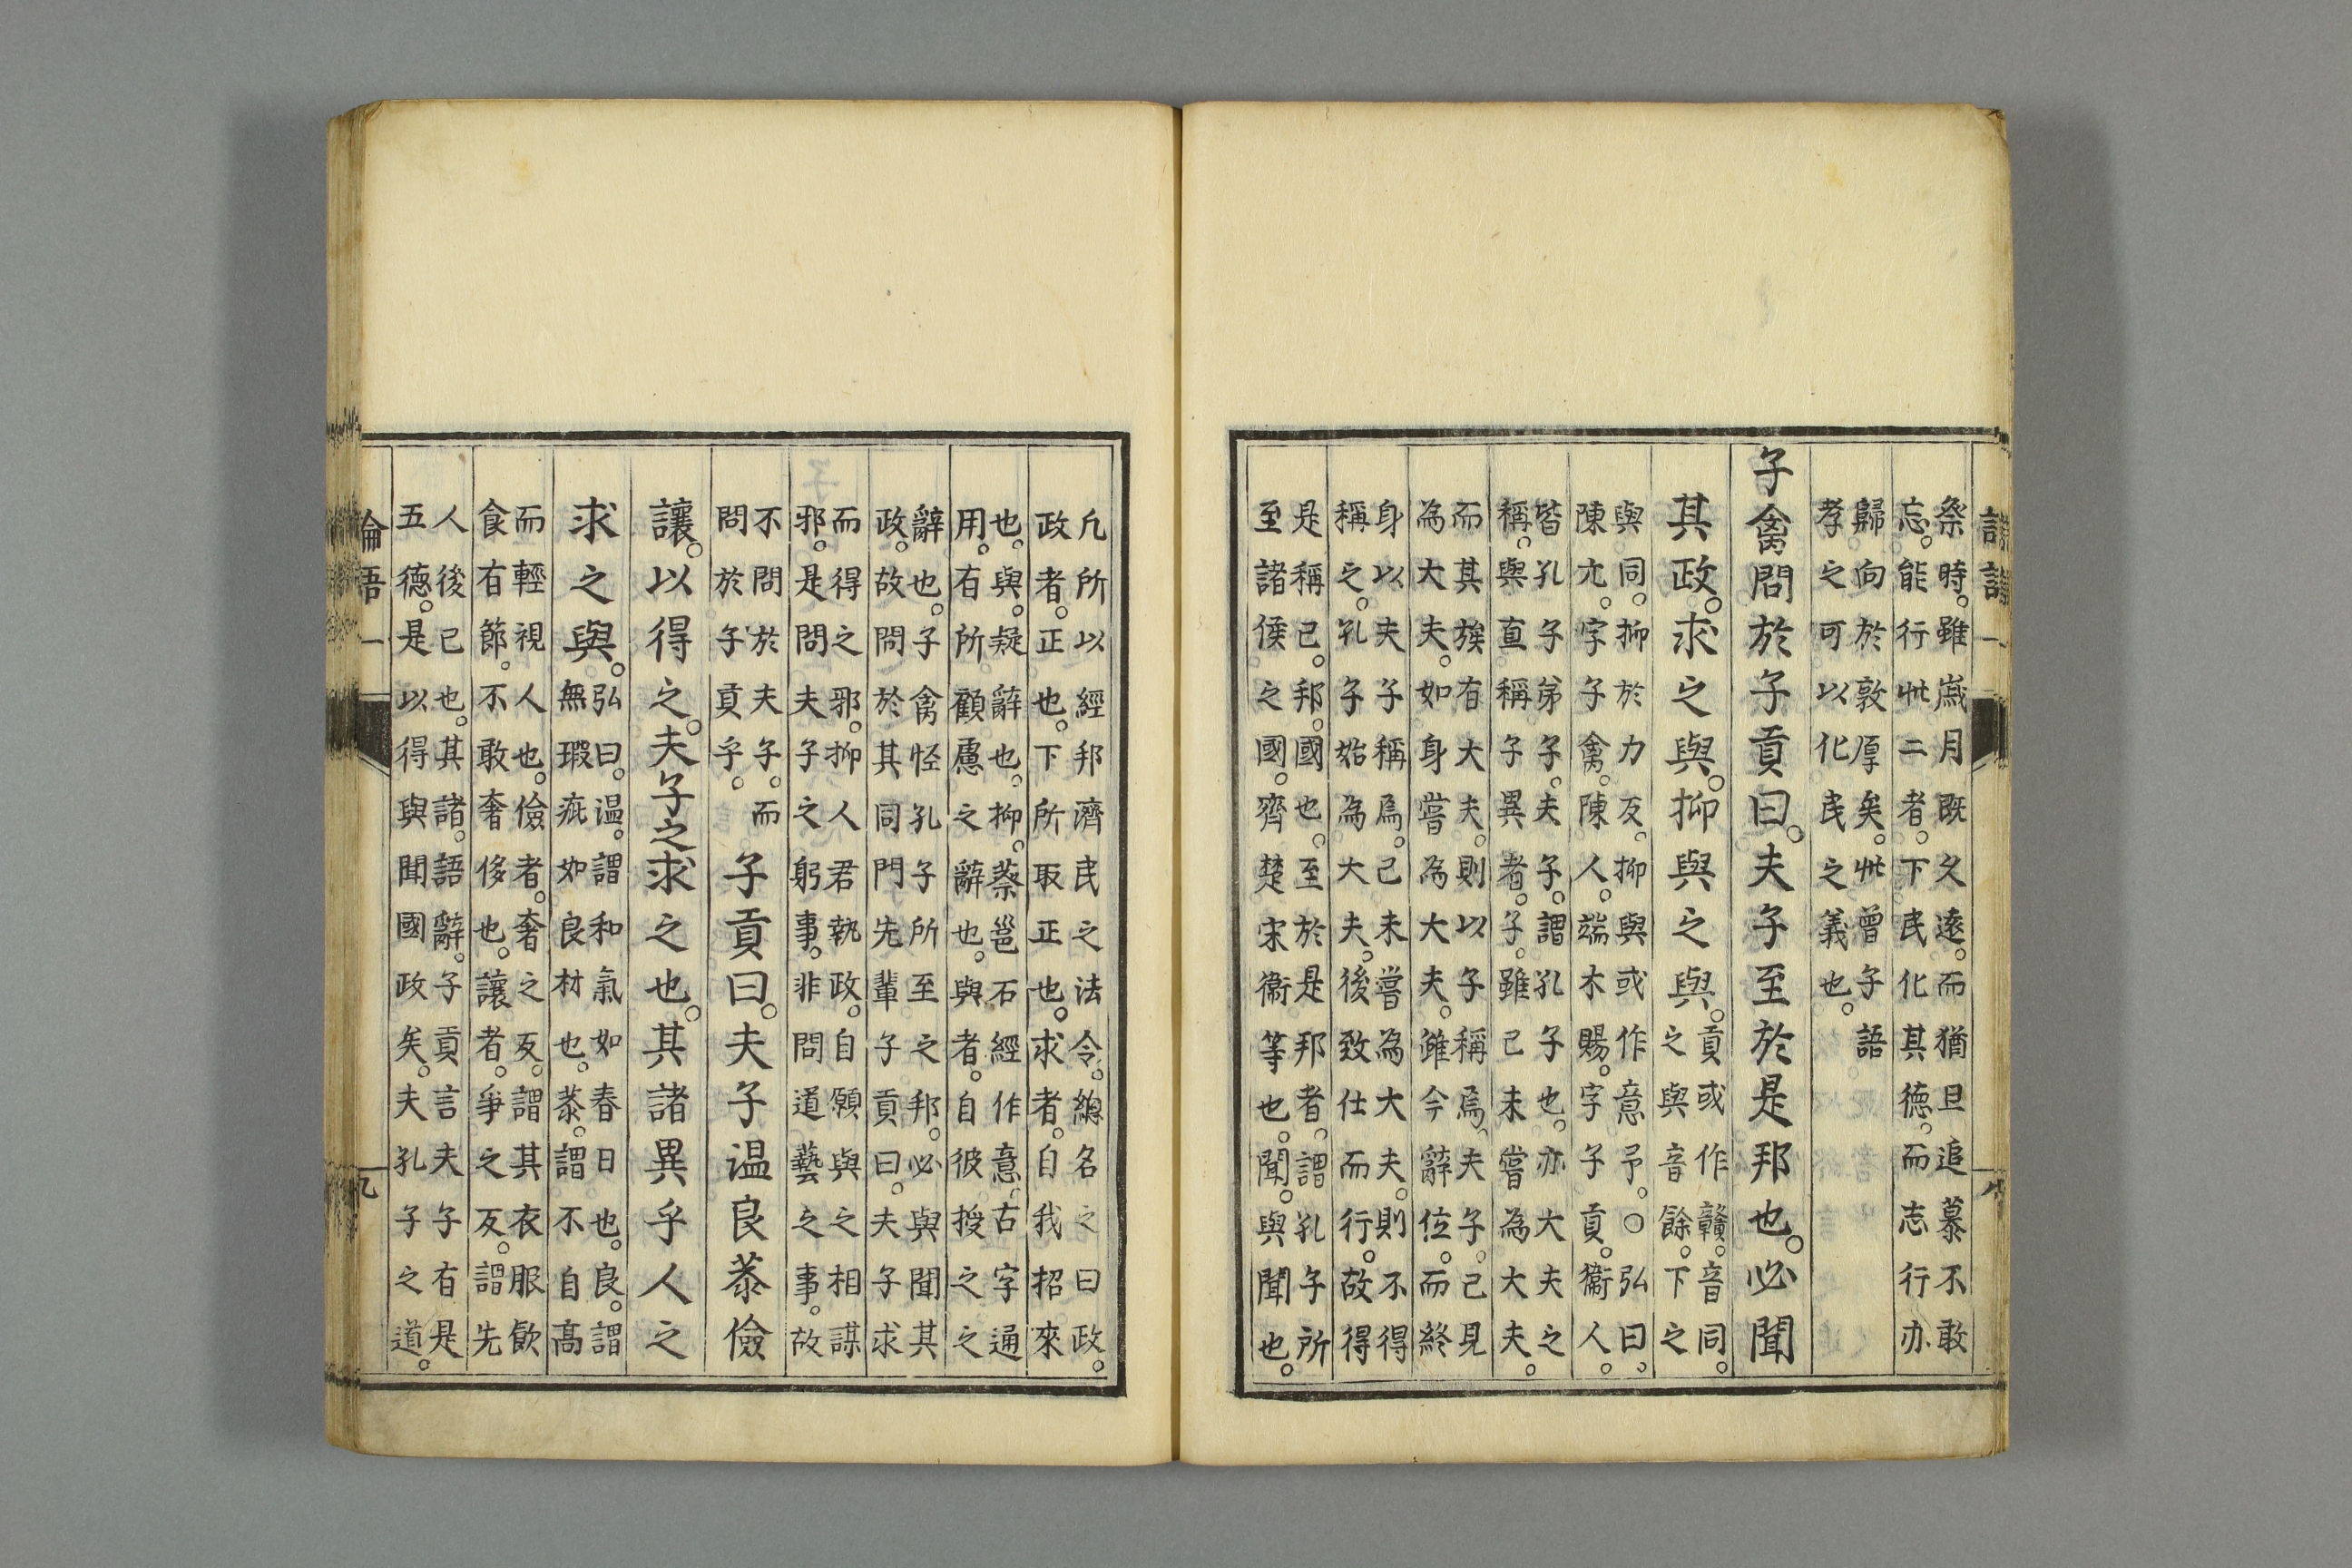 祭時。雖歳月既久遠。而猶且追慕不敢
忘。能行此二者。下民化其德。而志行亦
歸向於敦厚矣。此曾子語
孝之可以化民之義也。
子禽問於子貢曰。夫子至於是邦也。必聞
其政。求之與。抑與之與。
貢或作贛。音同。
之與音餘。下之
與同。抑於力反。抑與或作意予。○弘曰。
陳亢。字子禽。陳人。端木賜。字子貢。衞人。
皆孔子弟子。夫子。謂孔子也。亦大夫之
稱。與直稱子異者。子。雖己未嘗為大夫。
而其族有大夫。則以子稱焉。夫子。己見
為大夫。如身嘗為大夫。雖今辭位。而終
身以夫子稱焉。己未嘗為大夫。則不得
稱之。孔子始為大夫。後致仕而行。故得
是稱已。邦。國也。至於是邦者。謂孔子所
至諸侯之國。齊楚宋衞等也。聞。與聞也。
凡所以經邦濟民之法令。總名之曰政。
政者。正也。下所取正也。求者。自我招來
也。與。疑辭也。抑。蔡邕石經作意。古字通
用。有所顧慮之辭也。與者。自彼授之之
辭也。子禽怪孔子所至之邦。必與聞其
政。故問於其同門先輩子貢曰。夫子求
而得之邪。抑人君執政。自願與之相謀
邪。是問夫子之躬事。非問道藝之事。故
不問於夫子。而
問於子貢乎。
子貢曰。夫子温良恭儉
讓。以得之。夫子之求之也。其諸異乎人之
求之與。
弘曰。温。謂和氣如春日也。良。謂
無瑕疵如良材也。恭。謂不自高
而輕視人也。儉者。奢之反。謂其衣服飲
食有節。不敢奢侈也。讓者。爭之反。謂先
人後己也。其諸。語辭。子貢言夫子有是
五德。是以得與聞國政矣。夫孔子之道。
論語一
九